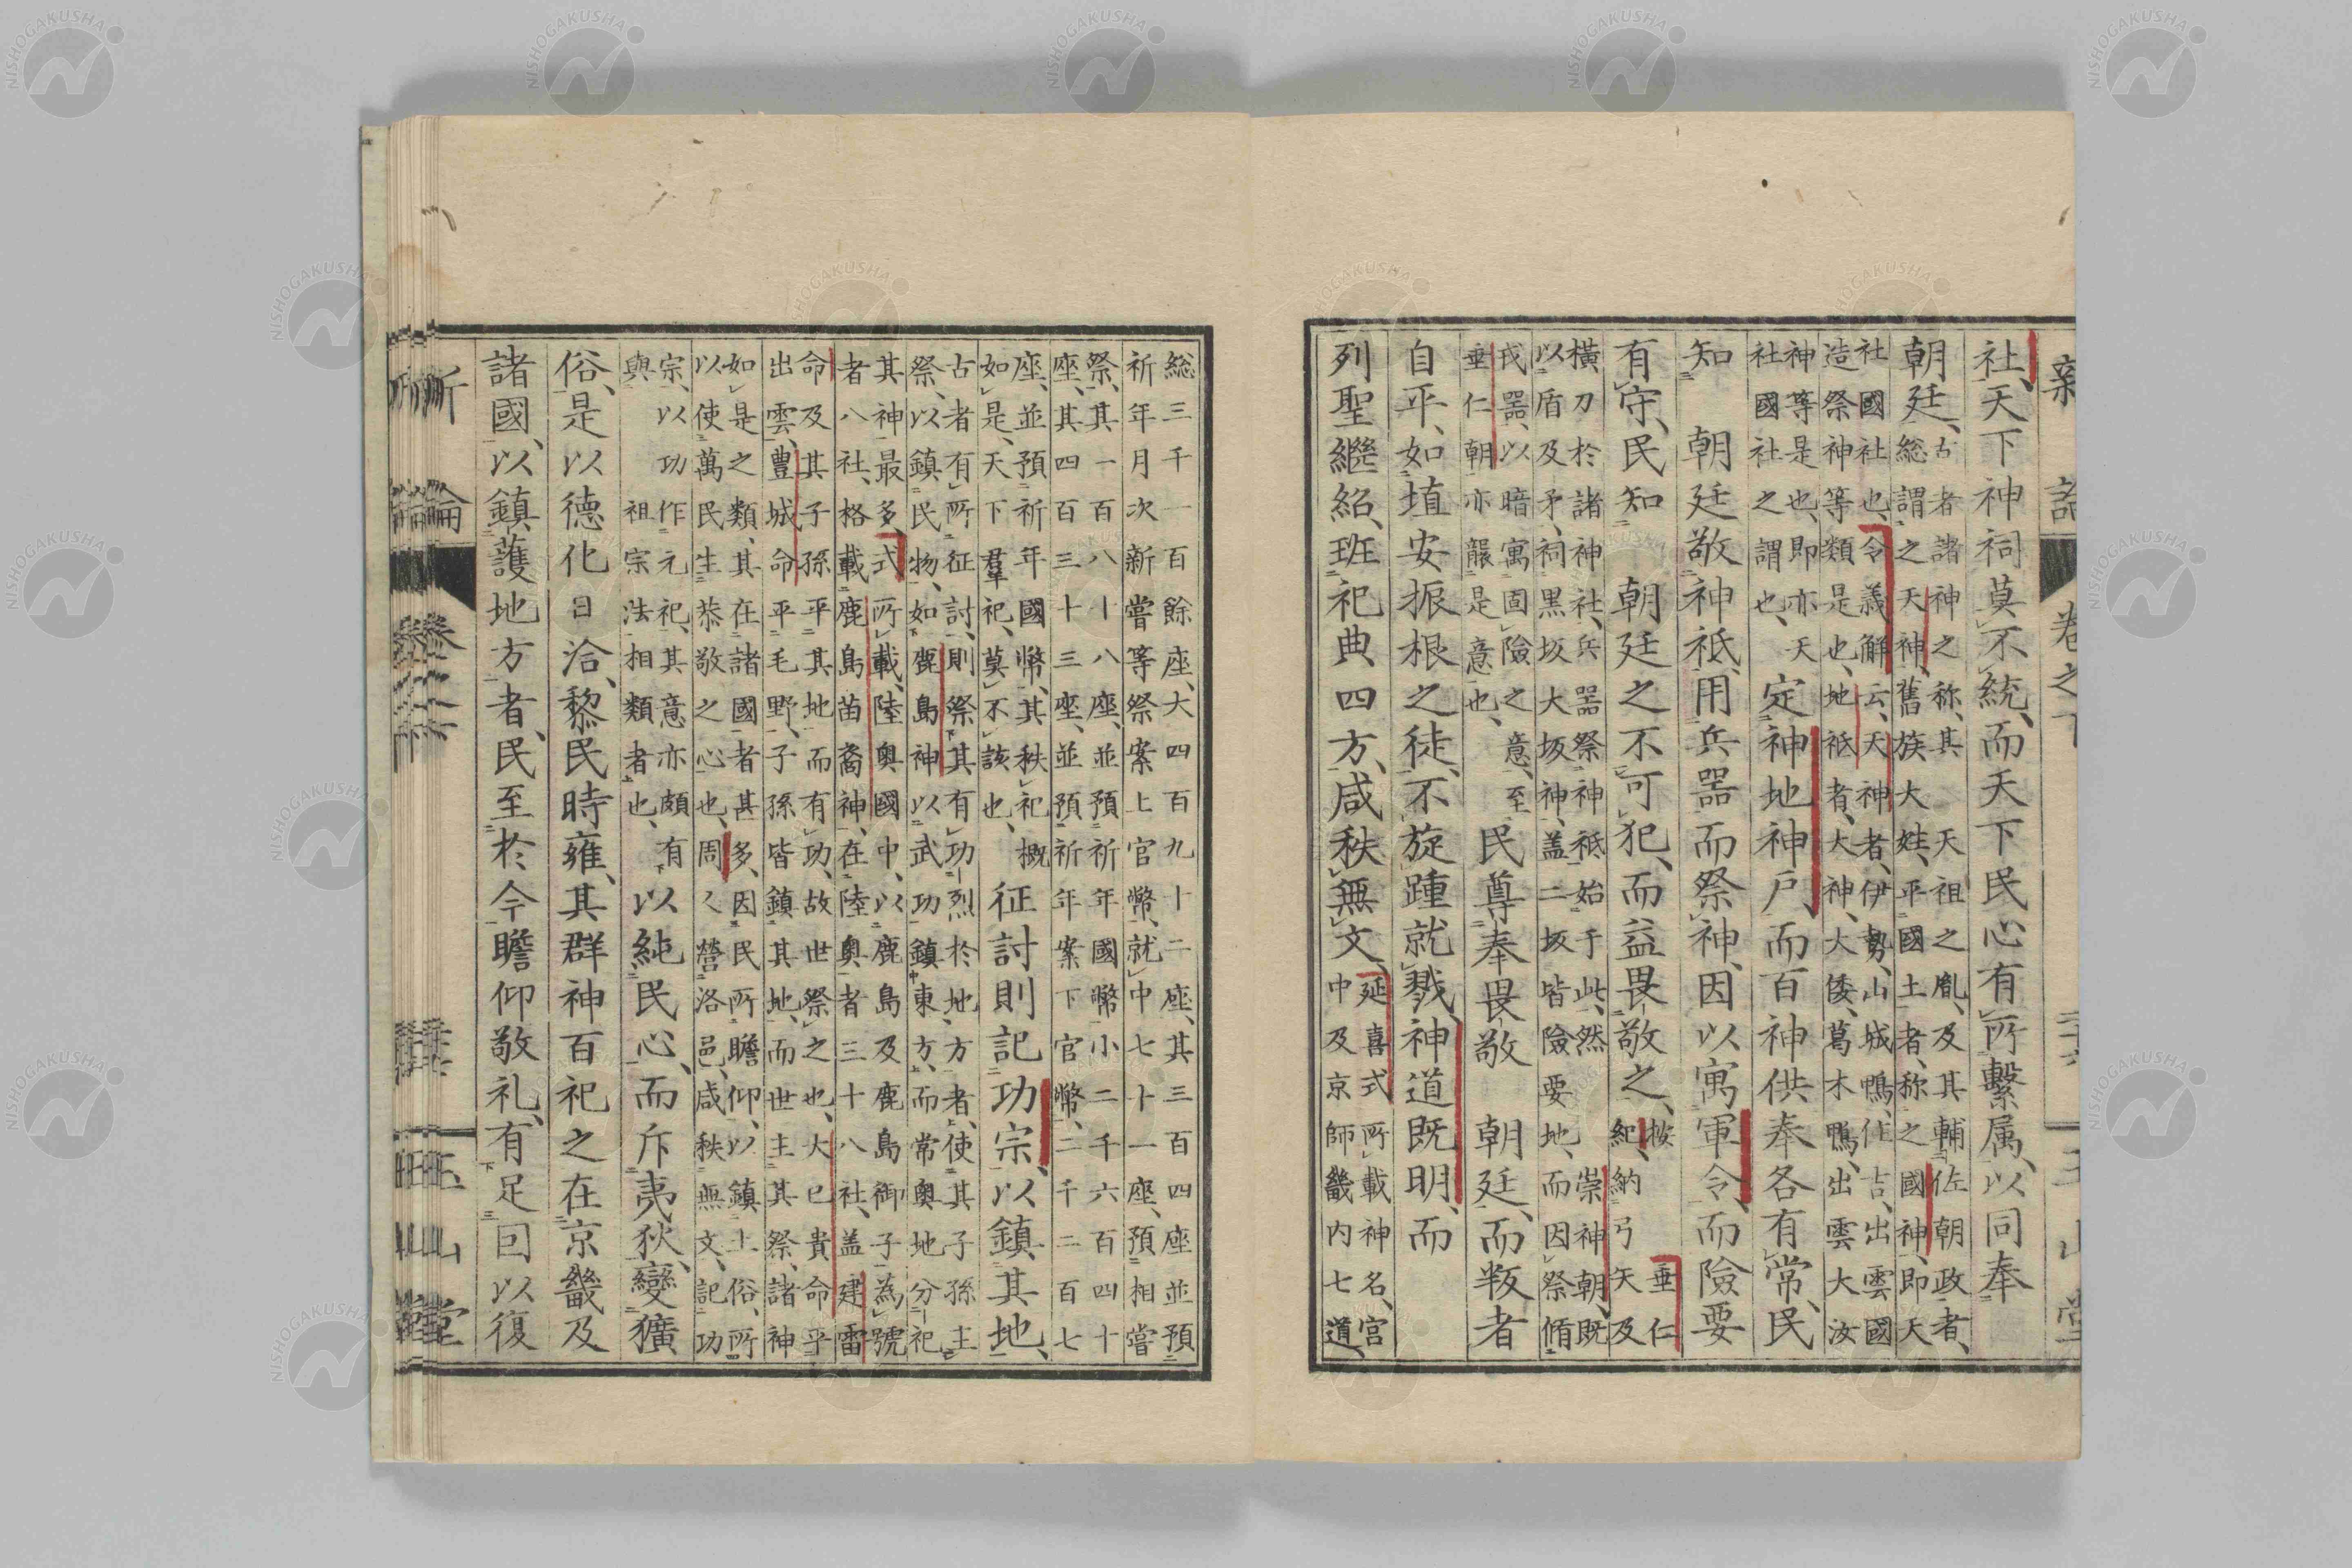 社、天下神祠莫不統、而天下民心有所繫属、以同奉
朝廷、
古者諸神之称、其天祖之胤、及其輔佐朝政者、
総謂之天神、舊族大姓、平國土者、称之國神、即天
社國社也、令義解云、天神者、伊勢、山城鴨、住吉、出雲國
造祭神等類是也、地祇者、大神、大倭、葛木鴨、出雲大汝
神等是也、即亦天
社國社之謂也、
定神地神戸而百神供奉各有常、民
知 朝廷敬神祇、用兵器而祭神、因以寓軍令、而險要
有守、民知 朝廷之不可犯、而益畏敬之、
按垂仁
紀、納弓矢及
横刀於諸神社、兵器祭神祇始于此、然崇神朝、既
以盾及矛、祠黒坂大坂神、盖二坂皆險要地、而因祭脩
戎器、以暗寓固險之意、至
垂仁朝亦襲是意也、
民尊奉畏敬 朝廷、而叛者
自平、如埴安振根之徒、不旋踵就戮、神道既明、而
列聖繼紹、班祀典四方、咸秩無文、
延喜式所載神名、官
中及京師畿内七道、
総三千一百餘座、大四百九十二座、其三百四座並預
祈年月次新嘗等祭案上官幣、就中七十一座、預相嘗
祭、其一百八十八座、並預祈年國幣、小二千六百四十
座、其四百三十三座、並預祈年案下官幣、二千二百七
座、並預祈年國幣、其秩祀概
如是、天下羣祀、莫不該也、
征討則記功宗、以鎮其地、
古者有所征討、則祭其有功烈於地方者、使其子孫主
祭、以鎮民物、如鹿島神以武功鎮東方、而常奥地分祀
其神最多、式所載、陸奥國中、以鹿島及鹿島御子為號
者八社、格載鹿島苗裔神、在陸奥者三十八社、盖建雷
命及其子孫平其地而有功、故世祭之也、大己貴命平
出雲、豊城命平毛野、子孫皆鎮其地、而世主其祭、諸神
如是之類、其在諸國者甚多、因民所瞻仰、以鎮土俗、所
以使萬民生恭敬之心也、周人營洛邑、咸秩無文、記功
宗、以功作元祀、其意亦頗有
與祖宗法相類者也、
以純民心、而斥夷狄、變獷
俗、是以德化日洽、黎民時雍、其群神百祀之在京畿及
諸國、以鎮護地方者、民至於今瞻仰敬礼、有足回以復
新論 卷之下
玉山堂
NISHOGAKUSHA